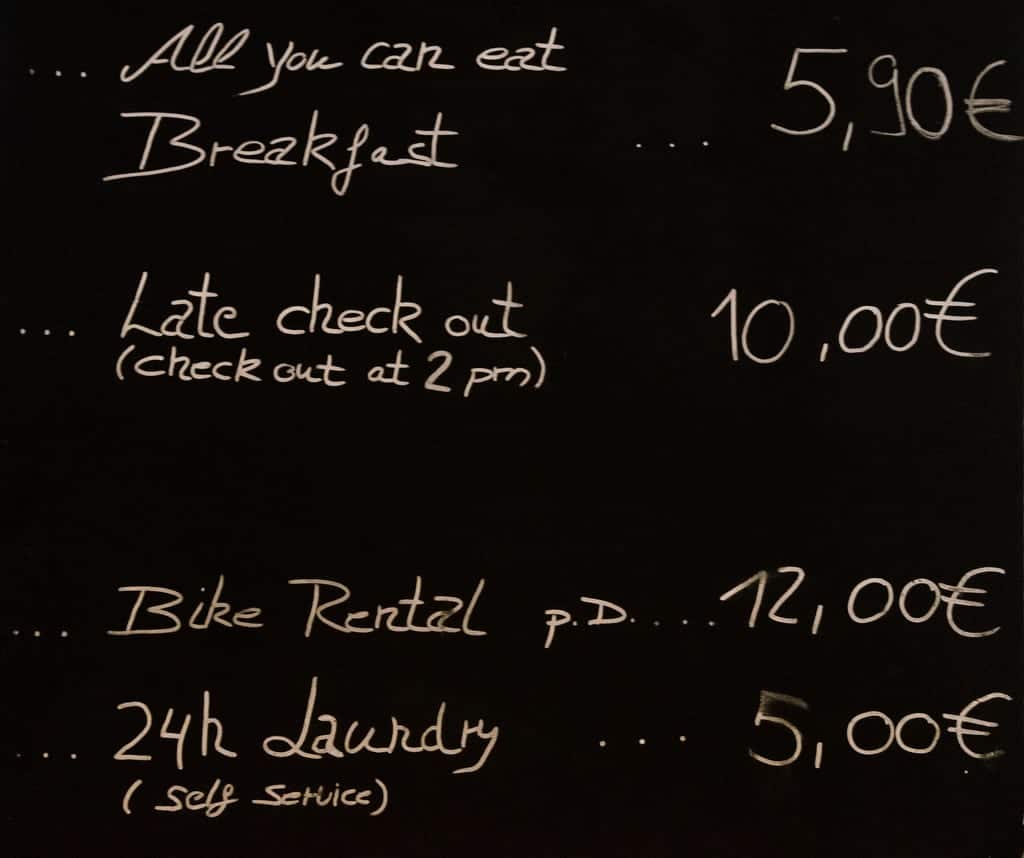 ... All you can eat
Breakfast ... 5,90€
... Late check out 10,00€
(check out at 2 pm)
... Bike Rental p.D..... 12,00€
... 24h Laundry ... 5,00€
(Self Service)